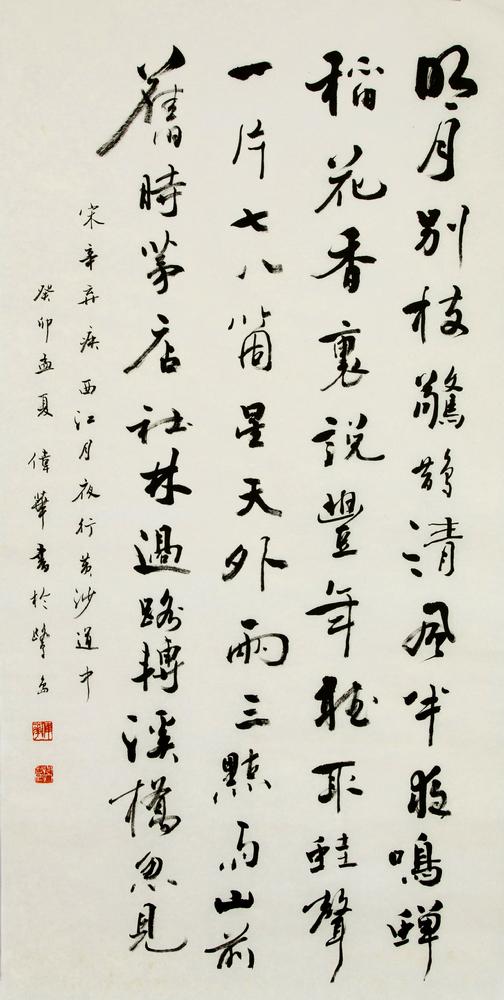 明月別枝驚鵲清風半夜鳴蟬
稻花香裏說豐年聽取蛙聲
一片七八箇星天外兩三點雨山前
舊時茅店社林邊路轉溪橋忽見
宋辛弃疾西江月夜行黄沙道中
癸卯孟夏偉華書於